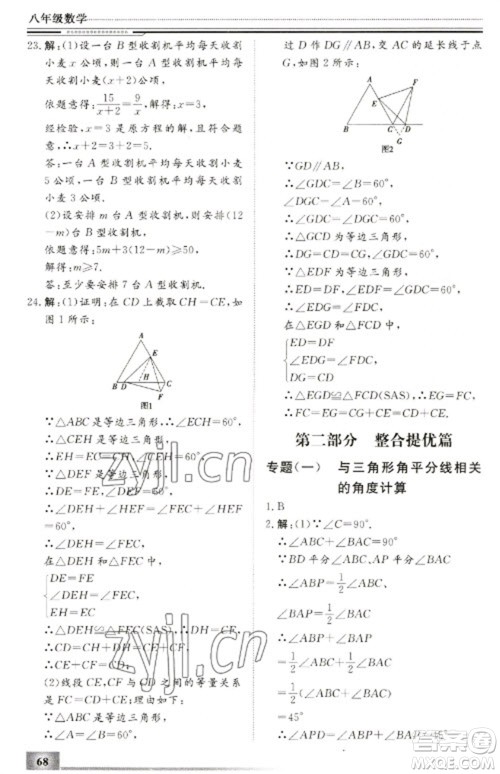 八年级数学
23. 解:(1)设一台 B 型收割机平均每天收割
小麦 x 公顷,则一台 A 型收割机平均每天
收割小麦(x+2)公顷.
依题意得:15/(x+2)=9/x,解得:x=3.
经检验,x=3 是原方程的解,且符合题
意,∴x+2=3+2=5.
答:一台 A 型收割机平均每天收割小麦
5 公顷,一台 B 型收割机平均每天收割小
麦 3 公顷.
(2)设安排 m 台 A 型收割机,则安排(12
-m)台 B 型收割机,
依题意得:5m+3(12-m)≥50,
解得:m≥7.
答:至少要安排 7 台 A 型收割机.
24. 解:(1)证明:在 CD 上截取 CH=CE,如
图 1 所示:
A
E
B D H C
F
图1
∵△ABC 是等边三角形,
∴∠ECH=60°,
∴△CEH 是等边三角形,
∴EH=EC=CH,∠CEH=60°,
∵△DEF 是等边三角形,
∴DE=FE,∠DEF=60°,
∴∠DEH+∠HEF=∠FEC+∠HEF
=60°,
∴∠DEH=∠FEC,
在△DEH 和△FEC 中,
DE=FE
∠DEH=∠FEC,
EH=EC
∴△DEH≌△FEC(SAS),∴DH=CF,
∴CD=CH+DH=CE+CF,
∴CE+CF=CD;
(2)线段 CE,CF 与 CD 之间的等量关系
是 FC=CD+CE;理由如下:
∵△ABC 是等边三角形,
∴∠A=∠B=60°,
过 D 作 DG∥AB,交 AC 的延长线于点
G,如图 2 所示:
A
F
E
B C D
G
图2
∵GD∥AB,
∴∠GDC=∠B=60°,
∠DGC=∠A=60°,
∴∠GDC=∠DGC=60°,
∴△GCD 为等边三角形,
∴DG=CD=CG,∠GDC=60°,
∵△EDF 为等边三角形,
∴ED=DF,∠EDF=∠GDC=60°,
∴∠EDG=∠FDC,
在△EGD 和△FCD 中,
ED=DF
∠EDG=∠FDC,
DG=CD
∴△EGD≌△FCD(SAS),
∴EG=FC,
∴FC=EG=CG+CE=CD+CE.
第二部分 整合提优篇
专题(一) 与三角形角平分线相关
的角度计算
1. B
2. 解:(1)∵∠C=90°.
∴∠ABC+∠BAC=90°
∵BD 平分∠ABC,AP 平分∠BAC
∴∠ABP=1/2∠ABC,
∠BAP=1/2∠BAC
∴∠ABP+∠BAP
=1/2∠ABC+1/2∠BAC
=45°
68
zyjl.cn
zyjl.cn
答案圈
MXQE.COM